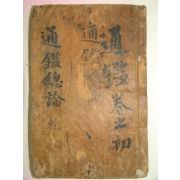 通鑑卷之初
通
通鑑總論